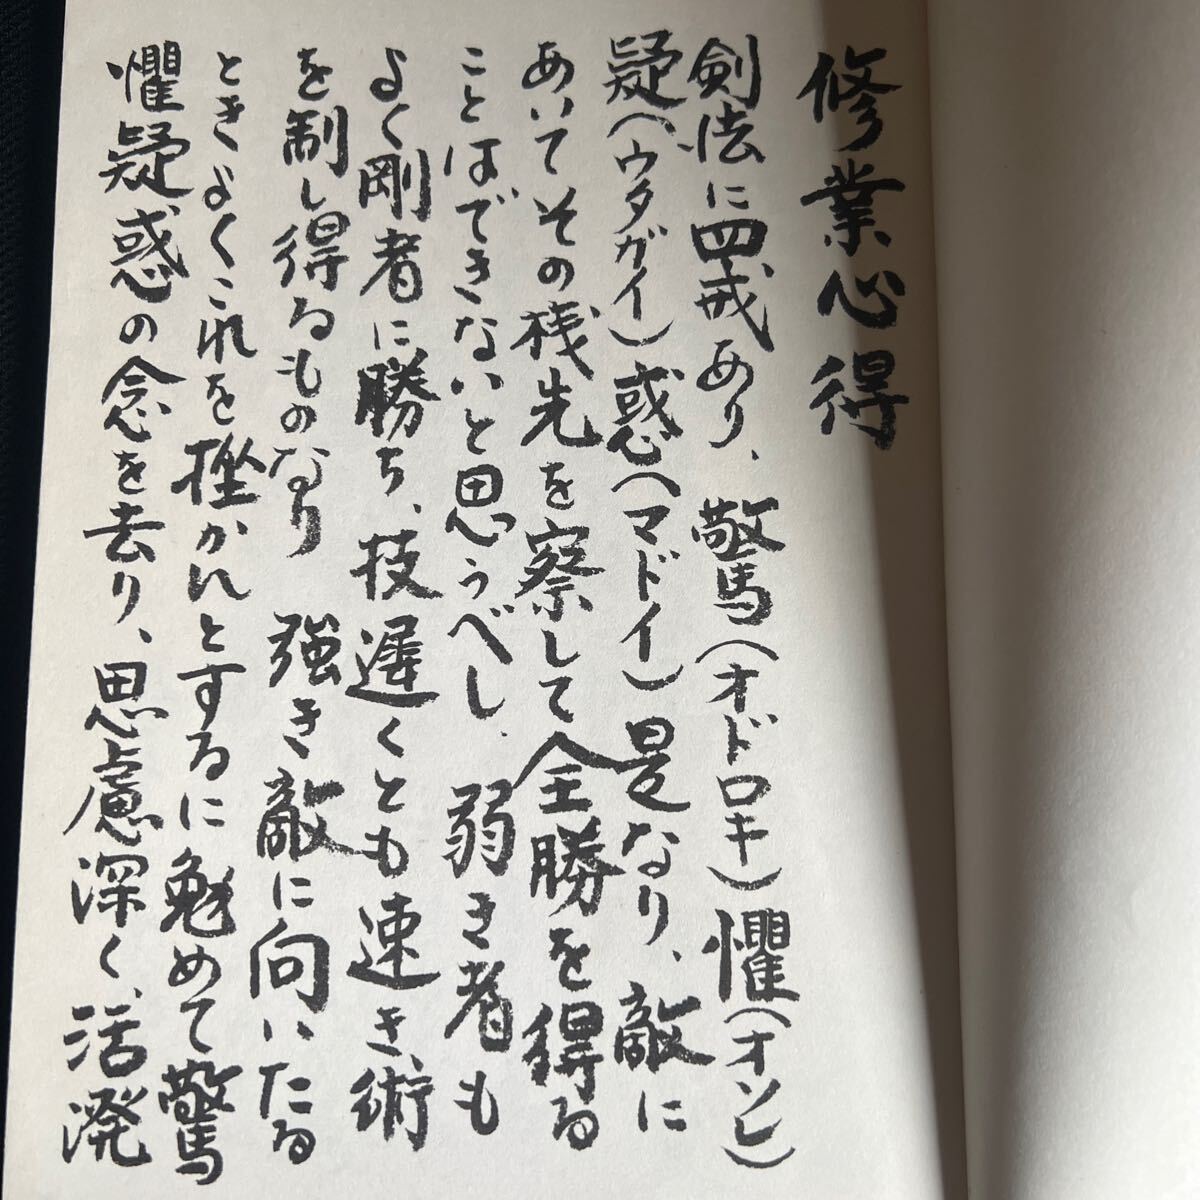 修業心得
剣法に四戒あり、驚(オドロキ)懼(オソレ)
疑(ウタガイ)惑(マドイ)是なり、敵に
あいてその機先を察して全勝を得る
ことはできないと思うべし、弱き者も
よく剛者に勝ち、技遅くとも速き術
を制し得るものなり 強き敵に向いたる
ときよくこれを挫かんとするに勉めて驚
懼疑惑の念を去り、思慮深く、活溌